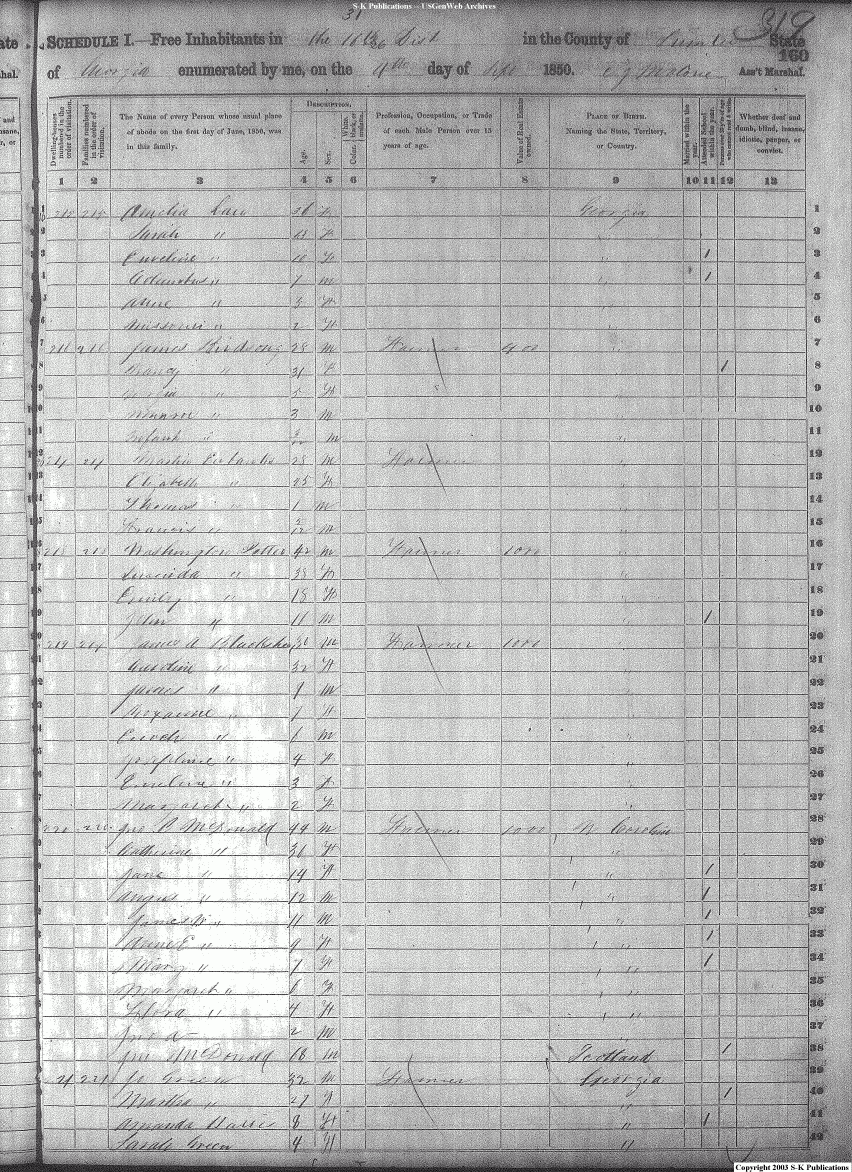 S-K Publications -- USGenWeb Archives
31
319
SCHEDULE I.—Free Inhabitants in the 16 Dist in the County of Sumter State
160
of Georgia enumerated by me, on the day of 1850. Ass't Marshal.
DESCRIPTION.
Dwelling-houses numbered in the order of visitation.
Families numbered in the order of visitation.
The Name of every Person whose usual place of abode on the first day of June, 1850, was in this family.
Age.
Sex.
Color, White, black, or mulatto.
Profession, Occupation, or Trade of each Male Person over 15 years of age.
Value of Real Estate owned.
PLACE OF BIRTH. Naming the State, Territory, or Country.
Married within the year.
Attended School within the year.
Persons over 20 y'rs of age who cannot read & write.
Whether deaf and dumb, blind, insane, idiotic, pauper, or convict.
1 2 3 4 5 6 7 8 9 10 11 12 13
Amelia 36 f Georgia 1
Sarah " 13 f " 2
Emeline " 10 f " 1 3
Columbus " 7 m " 1 4
" 3 f " 5
Missouri " 2 f " 6
James Birdsong 28 m Farmer 400 " 7
Nancy " 31 f " 1 8
" 5 f " 9
Munroe " 3 m " 10
" m " 11
Martin 28 m Farmer " 12
Elizabeth " 25 f " 13
Thomas " 1 m " 14
Francis " m " 15
218 218 Washington Potter 42 m Farmer 1000 " 16
Lucinda " 38 f " 17
Emily " 18 f " 18
John " 11 m " 1 19
219 219 James A Blackshear m Farmer 1000 " 20
Caroline " 32 f " 21
James " 9 m " 22
Roxanne " 7 f " 23
Enoch " 6 m " 24
Josephine " 4 f " 25
Emeline " 3 f " 26
Margaret " 2 f " 27
220 220 Jno P McDonald 44 m Farmer 1000 N Carolina 28
Catherine " 36 f " 29
Jane " 14 f " 1 30
Angus " 12 m " 1 31
James W " 11 m " 1 32
Anne E " 9 f " 1 33
Mary " 7 f " 1 34
Margaret " 6 f " 35
Flora " 4 f " 36
Jno A 2 m " 37
Jno McDonald 68 m Scotland 1 38
221 Green 32 m Farmer Georgia 39
Martha " 27 f " 1 40
Amanda Harris 8 f " 1 41
Sarah Green 4 f " 42
Copyright 2003 S-K Publications